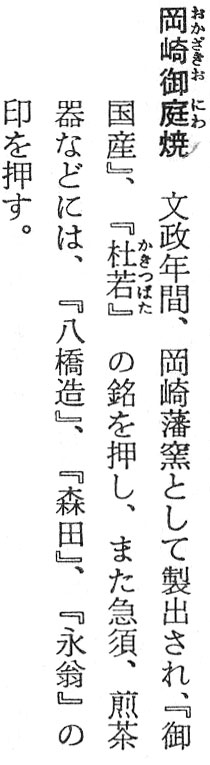 岡崎御庭焼　文政年間、岡崎藩窯として製出され、『御
国産』、『杜若』の銘を押し、また急須、煎茶
器などには、『八橋造』、『森田』、『永翁』の
印を押す。